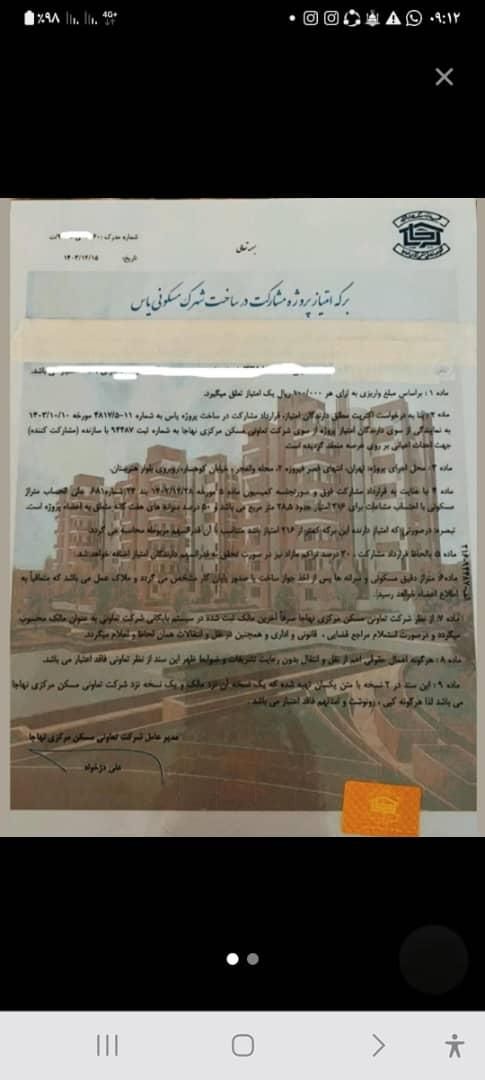 %۹۸ 4G+ ۰۹:۱۲
بسمه تعالی
شماره مدرک :
تاریخ: ۱۴۰۳/۱۲/۱۵
برگه امتیاز پروژه مشارکت در ساخت شهرک مسکونی یاس
می باشد.
ماده ۱ : براساس مبلغ واریزی به ازای هر ۱۰۰/۰۰۰ ریال یک امتیاز تعلق میگیرد.
ماده ۲: بنا به درخواست اکثریت مطلق دارندگان امتیاز، قرارداد مشارکت در ساخت پروژه یاس به شماره ۱۱-۴۸۱۷/۵ مورخه ۱۴۰۳/۱۰/۱۰
به نمایندگی از سوی دارندگان امتیاز پروژه از سوی شرکت تعاونی مسکن مرکزی نهاجا به شماره ثبت ۹۴۴۸۷ با سازنده (مشارکت کننده)
جهت احداث اعیانی بر روی عرصه منعقد گردیده است.
ماده ۳: محل اجرای پروژه: تهران، انتهای قصر فیروزه ۲، محله والفجر، خیابان کوهسار، روبروی بلوار هنرستان.
ماده ۴ با عنایت به قرارداد مشارکت فوق و صورتجلسه کمیسیون ماده ۵ مورخه ۱۴۰۲/۱۲/۲۸ بند ۲۴ شماره ۶۸۱ ملی الحساب متراژ
مسکونی با احتساب مشاعات برای ۲۱۶ امتیاز حدود ۲۸،۵ متر مربع می باشد و ۵۰ درصد سرانه های هفت گانه متعلق به اعضاء پروژه است.
تبصره: درصورتی که امتیاز دارنده این برگه کمتر از ۲۱۶ امتیاز باشد متناسب با آن قدرالسهم مربوطه محاسبه می گردد.
ماده ۵ بالحاظ قرارداد مشارکت ، ۳۰ درصد تراکم مازاد نیز در صورت تحقق به قدرالسهم دارندگان امتیاز اضافه خواهد شد.
ماده۶ متراژ دقیق مسکونی و سرانه ها پس از اخذ جواز ساخت یا صدور پایان کار مشخص می گردد و ملاک عمل می باشد که متعاقباً به
اطلاع اعضاء خواهد رسید.
ماده ۷: از نظر شرکت تعاونی مسکن مرکزی نهاجا صرفاً آخرین مالک ثبت شده در سیستم بایگانی شرکت تعاونی به عنوان مالک محسوب
میگردد و درصورت استعلام مراجع قضایی ، قانونی و اداری و همچنین در نقل و انتقالات همان لحاظ و اعلام میگردد.
ماده ۸ : هرگونه اعمال حقوقی اعم از نقل و انتقال بدون رعایت تشریفات و ضوابط ظهر این سند از نظر تعاونی فاقد اعتبار می باشد.
ماده ۹ : این سند در ۲ نسخه با متن یکسان تهیه شده که یک نسخه آن نزد مالک و یک نسخه نزد شرکت تعاونی مسکن مرکزی نهاجا
می باشد لذا هرگونه کپی ، رونوشت و امثالهم فاقد اعتبار می باشد .
مدیر عامل شرکت تعاونی مسکن مرکزی نهاجا
علی دژخواه